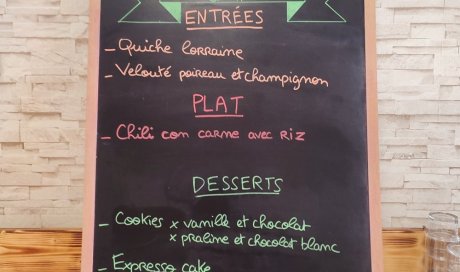 ENTRÉES
- Quiche lorraine
- Velouté poireau et champignon
PLAT
- Chili con carne avec RIZ
DESSERTS
- Cookies x vanille et chocolat
x praline et chocolat blanc
- Expresso cake